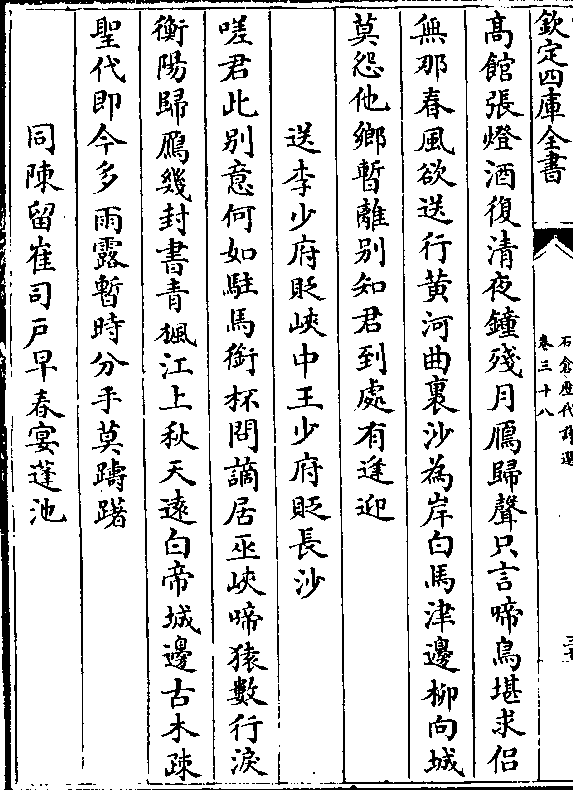 欽定四庫全書
石倉歴代詩選
卷三十八
髙館張燈酒復清夜鐘殘月鴈歸聲只言啼鳥堪求侣
無那春風欲送行黄河曲裏沙為岸白馬津邊柳向城
莫怨他鄉暫離别知君到處有逢迎
送李少府貶峽中王少府貶長沙
嗟君此别意何如駐馬銜杯問謫居巫峽啼猿數行淚
衡陽歸鴈幾封書青楓江上秋天逺白帝城邊古木疎
聖代即今多雨露暫時分手莫躊躇
同陳留崔司戸早春宴蓬池